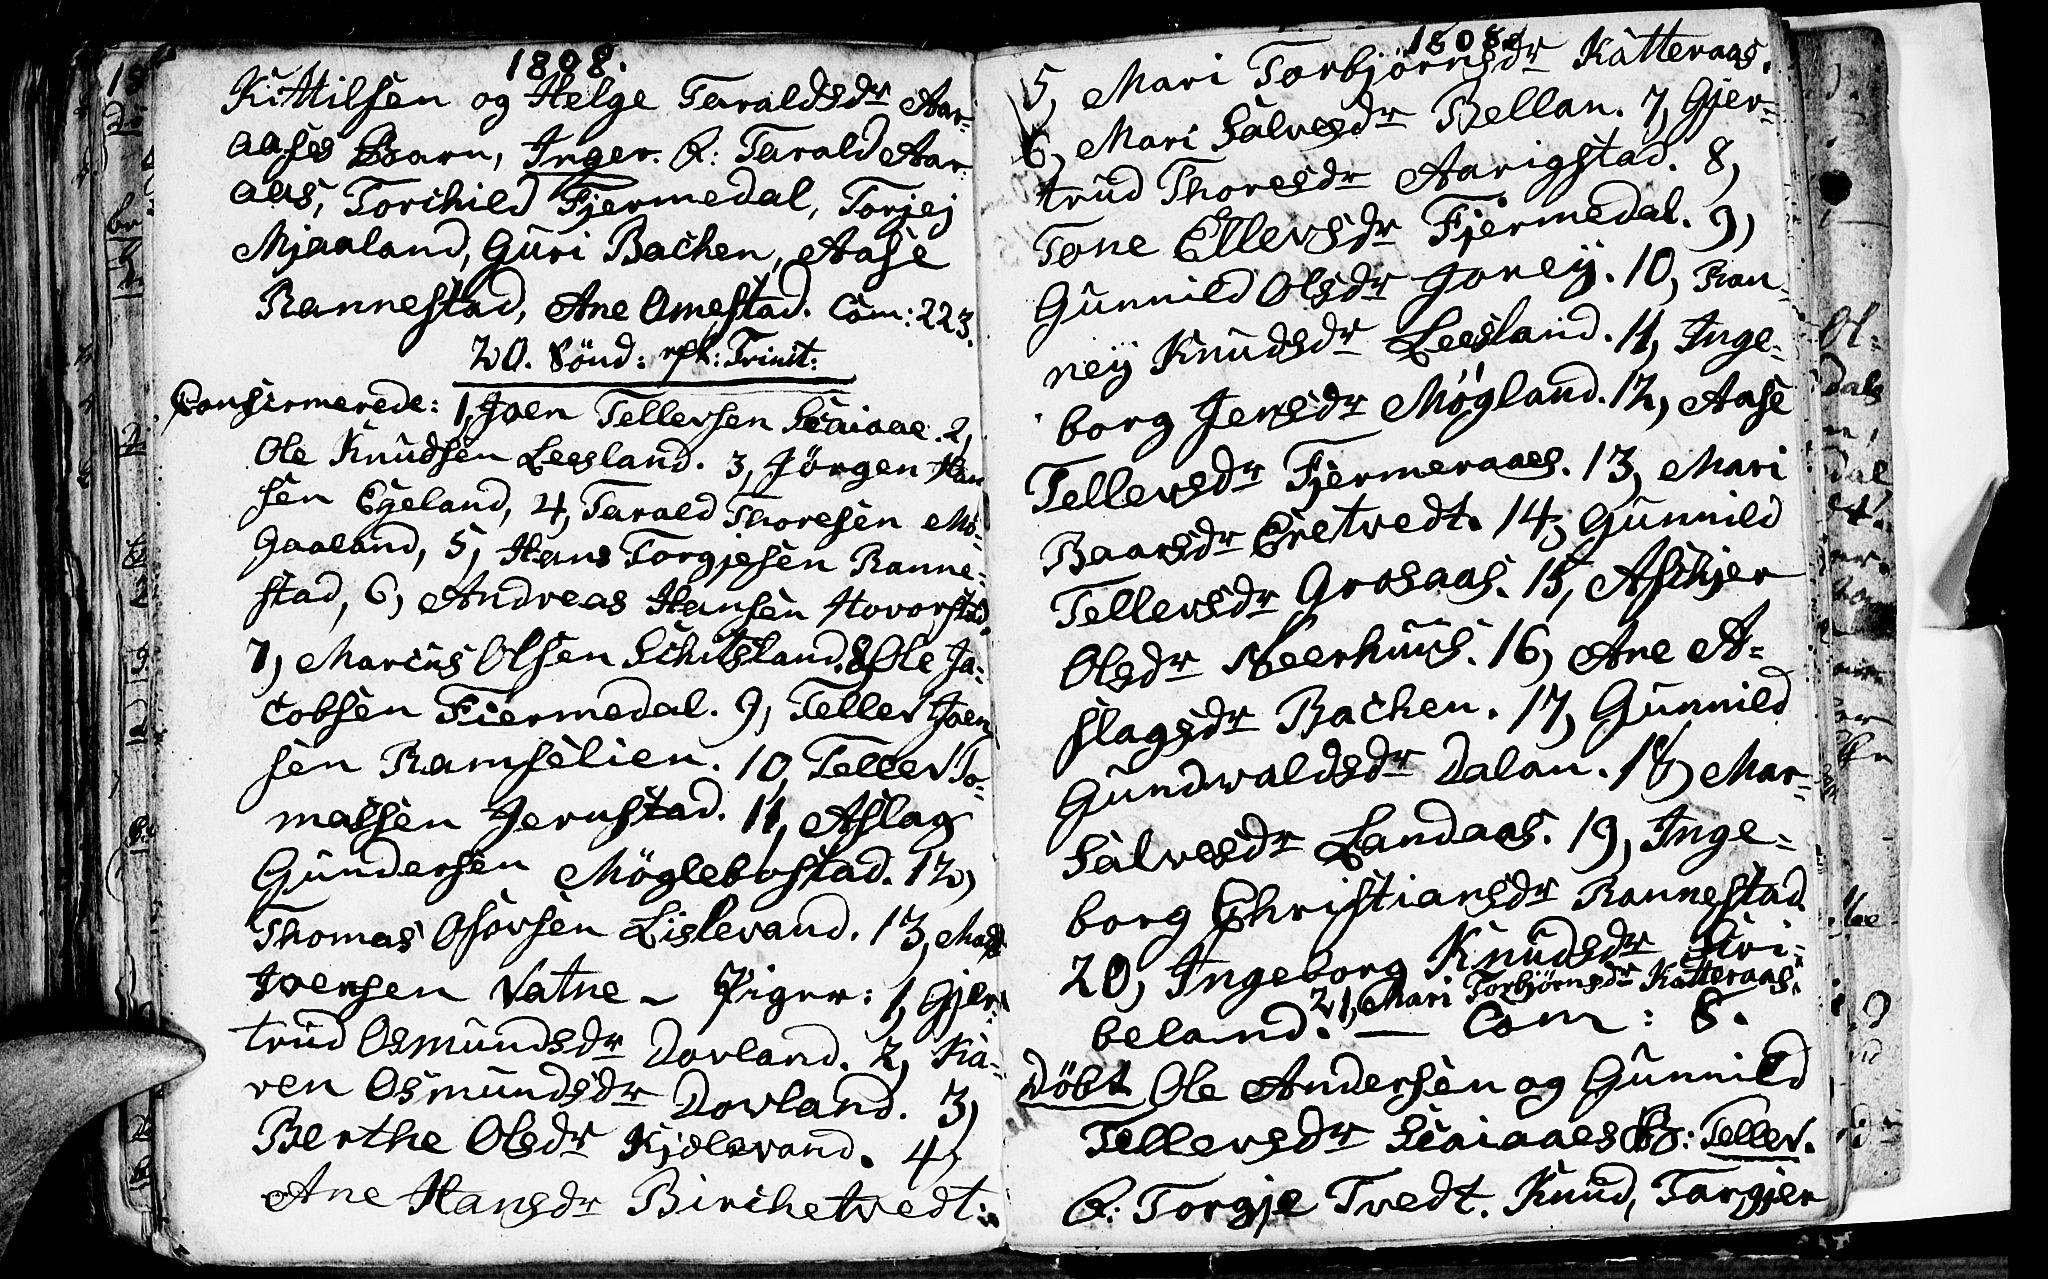 1808.
Kittilsen og Helge Taraldsdr Aar-
aases Barn, Inger. F: Tarald Aar-
aas, Torchild Fjermedal, Torjej
Mjaaland, Guri Bachen, Aase
Rannestad, Ane Omestad. Com: 223.
20. Sönd: eft: Trinit:
Confirmerede: 1, Joen Tellefsen Scaiaae. 2,
Ole Knudsen Leesland. 3, Jörgen Han
sen Egeland, 4, Tarald Thoresen Mö-
gaaland, 5, Hans Torgjesen Ranne-
stad, 6, Andreas Hansen Hovorstad.
7, Marcus Olsen Schitsland. 8, Ole Ja-
cobsen Fiermedal. 9, Tellef Joen
sen Ramselien. 10, Tellef To-
massen Jernstad. 11, Aslag
Gundersen Möglebostad. 12,
Thomas Osorsen Lislevand. 13, Mads
Iversen Vatne – Piger: 1, Gjer-
trud Osmundsdr Dovland. 2, Ka-
ren Osmundsdr Dovland. 3,
Berthe Olsdr Kjölevand. 4,
Ane Hansdr Birchetvedt.
1808.
5, Mari Torbjörnsdr Katteraas.
6, Mari Salvesdr Bellan. 7, Gjer-
trud Thoresdr Aarigstad. 8,
Tone Ellefsdr Fjermedal. 9,
Gunnild Olsdr Jorej. 10, Ran-
nej Knudsdr Leesland. 11, Inge-
borg Jensdr Mögland. 12, Aase
Tellefsdr Fjermeraaes. 13, Mari
Baarsdr Eretvedt. 14, Gunnild
Tellefsdr Grosaas. 15, Aschjer
Olsdr Neerhuus. 16, Ane A-
slagsdr Bachen. 17, Gunnild
Gundvaldsdr Dalan. 18, Mar-
Salvesdr Landaas. 19, Inge-
borg Christiansdr Rannestad
20, Ingeborg Knudsdr Scri-
beland. 21, Mari Torbjörnsdr Katteraas.
— Com: 8.
Döbt Ole Andersen og Gunnild
Tellefsdr Scaiaaes B: Tellef.
F: Torgje Tvedt. Knud, Targjer